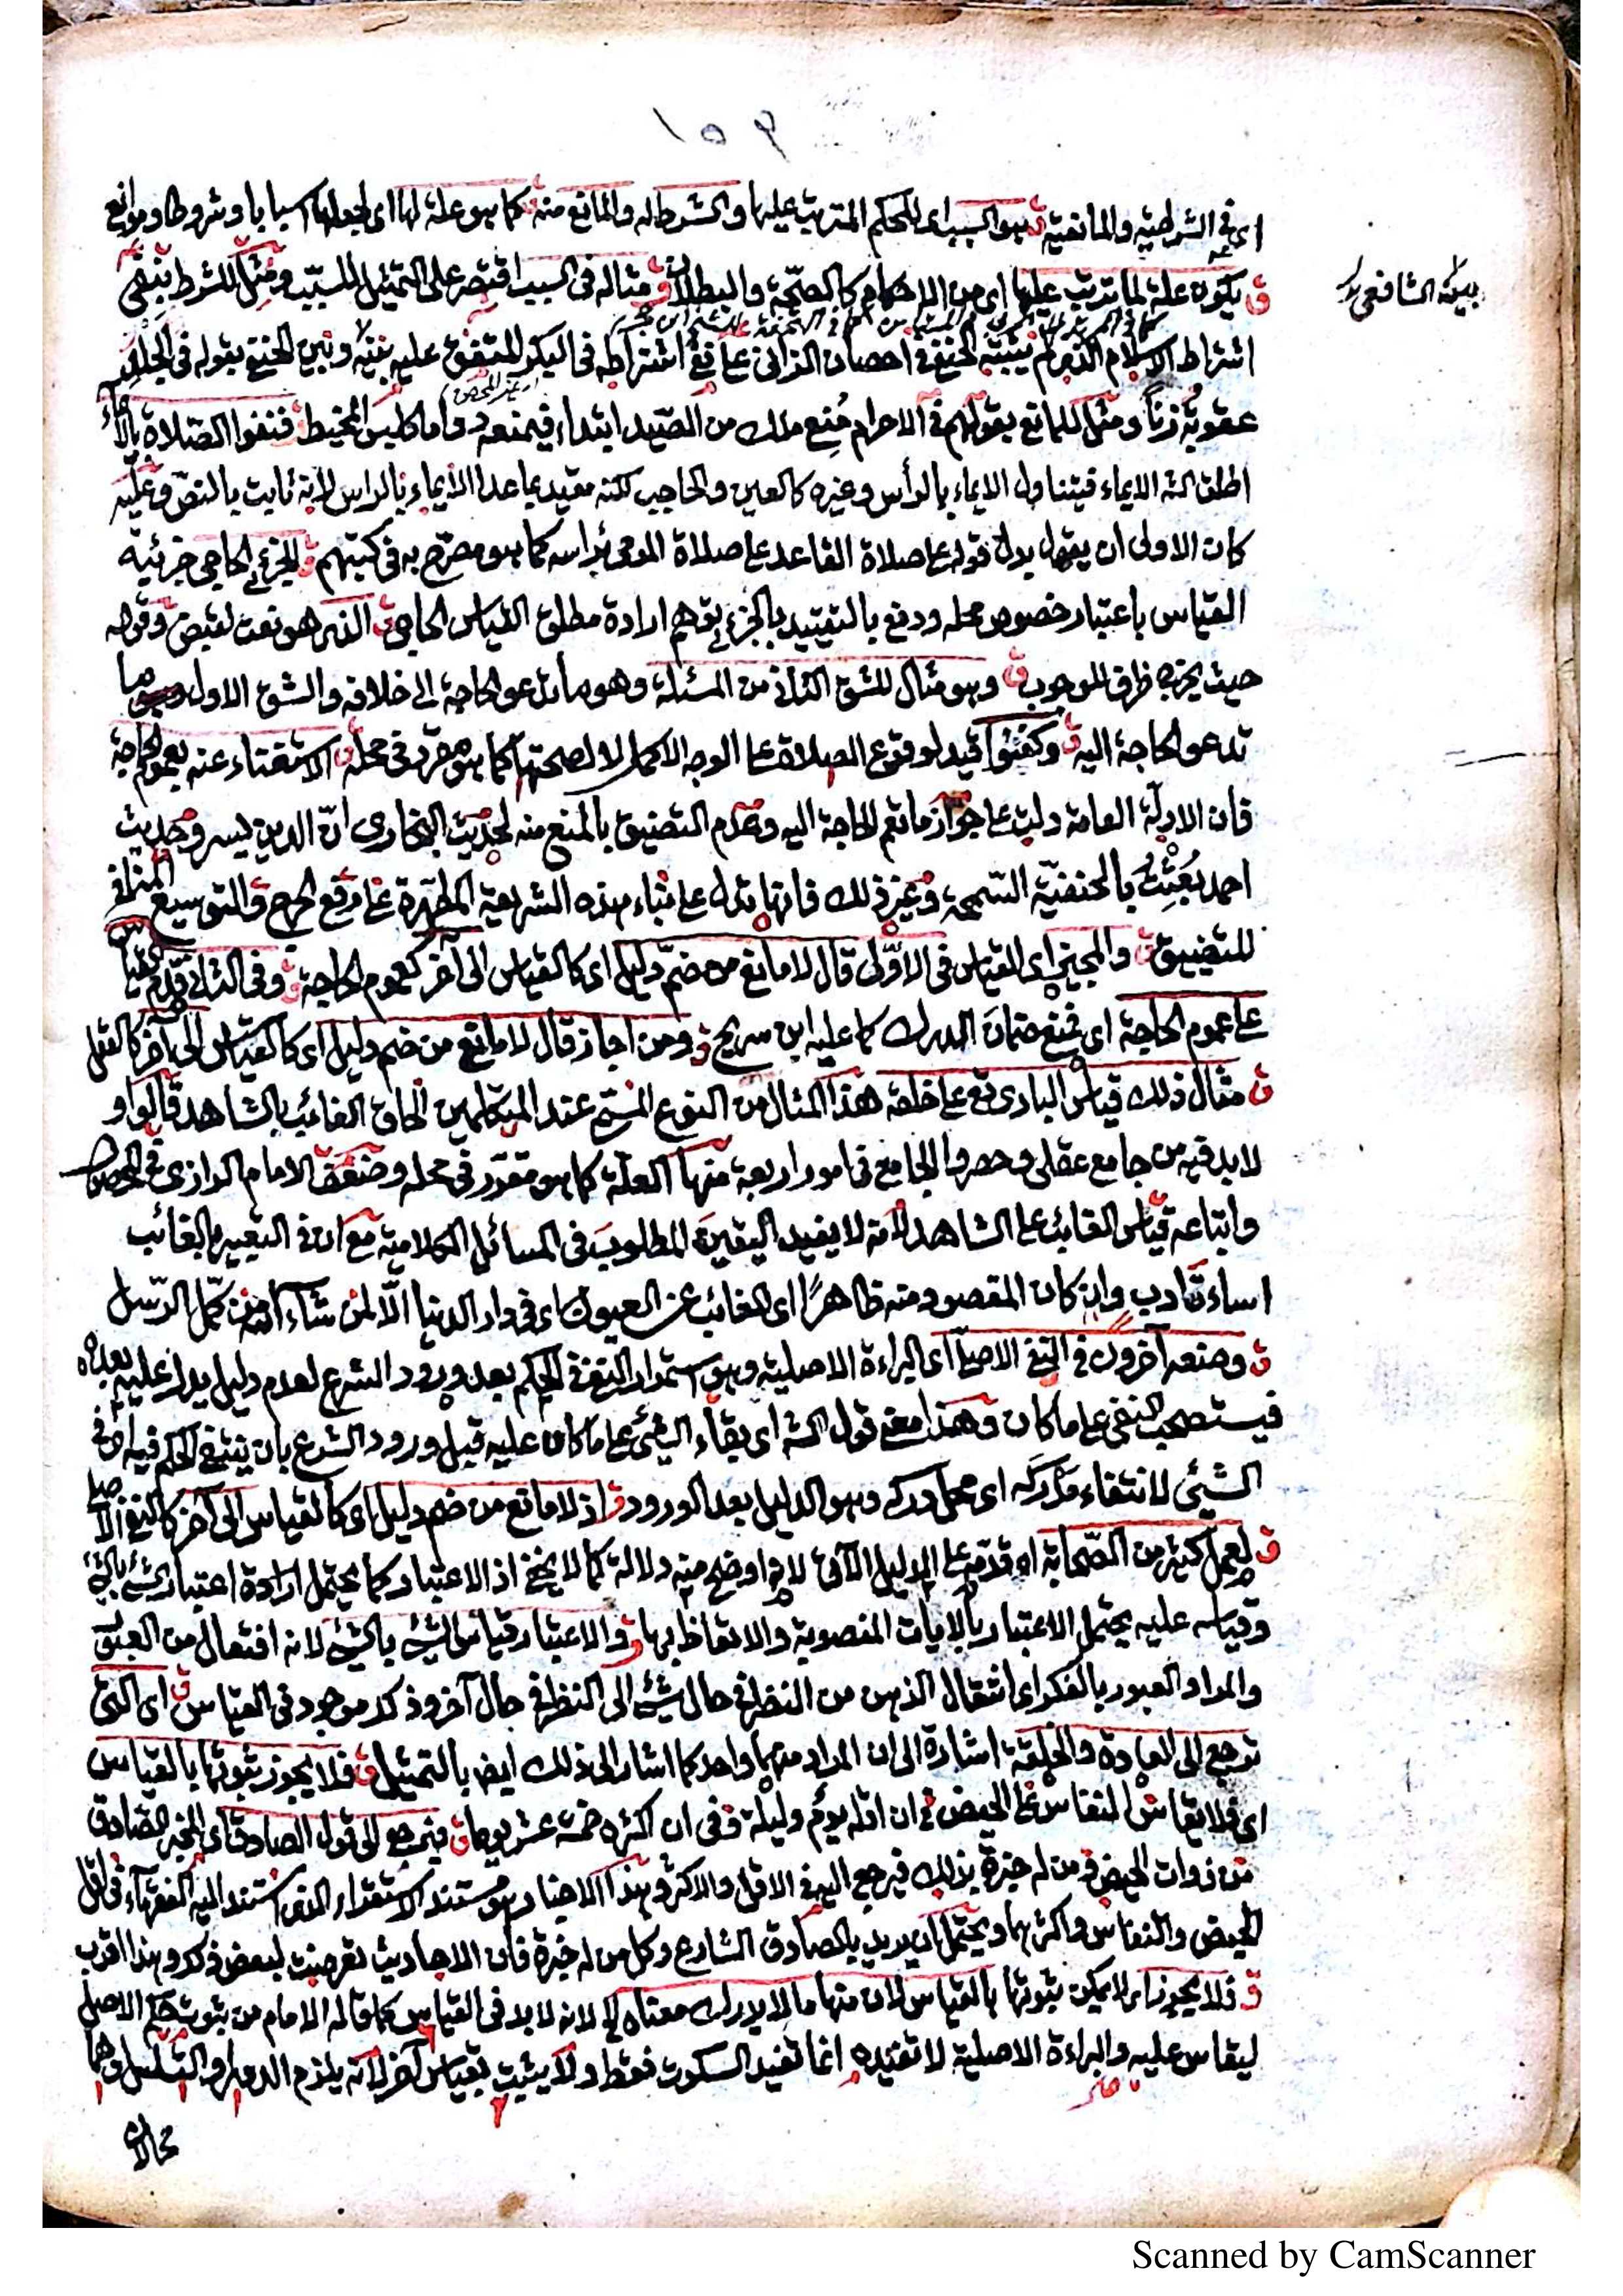 اى فى الشرطية والمانعية ق هو السبب اى للحكم المترتب عليها والشرط له والمانع منه ق كما هو علة لها اى لجعلها اسبابا وشروطا وموانع
ق يكون علة لما ترتب عليها اى من الاحكام كالصحة والبطلان ق مثاله فى السبب اقتصر على التمثيل للسبب ومثل للشرط بنفى
اشتراط الاسلام الذى لم يثبته الحنفى فى احصان الزانى على نفى اشتراطه فى البكر المتفق عليه بيننا وبين الحنفى بقوله فى الجلد
عقوبة زنا ومثل للمانع بقولهم فى الاحرام منع ملك من الصيد ابتداء فيمنعه دواما كلبس المخيط ق فنفوا الصلاة بالايماء
اطلق الش الايماء فيتناول الايماء بالرأس وغيره كالعين والحاجب لكنه مقيد بما عدا الايماء بالراس لانه ثابت بالنص وعليه
كان الاولى ان يقول بدل قوله على صلاة القاعد على صلاة المومى براسه كما هو مصرح به فى كتبهم ق الجزئى الحاجى جزئية
القياس باعتبار خصوص محله ودفع بالتقييد بالجزئى توهم ارادة مطلق القياس الحاجى ق الذى هو نعت لقبض وقوله
حيث يخرج ظرف للوجوب ق وهو مثال للشق الثانى من المسئلة وهو ما تدعو الحاجة الى خلافه والشق الاول وهو ما
تدعو الحاجة اليه ق وكفنوا قيد لوقوع الصلاة على الوجه الاكمل لا لصحتها كما هو مقرر فى محله ق الاستغناء عنه بعموم الحاجة
فان الادلة العامة دلت على جواز ما تعم الحاجة اليه وعدم التضييق بالمنع منه لحديث البخارى ان الدين يسر وحديث
احمد بعثت بالحنفية السمحة وغير ذلك فانها تدل على بناء هذه الشريعة المطهرة على رفع الحرج والتوسيع المنافى
للتضييق ق والمجيز اى للقياس فى الاول قال لا مانع من ضم دليل اى كالقياس الى آخر كعموم الحاجة ق وفى الثانى قدم القياس
على عموم الحاجة اى فمنع ضمان الدرك كما عليه ابن سريج ق ومن اجاز قال لا مانع من ضم دليل اى كالقياس الى آخر كالعقل
ق مثال ذلك قياس البارى تع على خلقه هذا المثال من النوع المسمى عند المتكلمين الحاق الغائب بالشاهد قالوا و
لا بد فيه من جامع عقلى وحصروا الجامع فى امور اربعة منها العلة كما هو مقرر فى محله وضعف الامام الرازى فى المحصول
واتباعه قياس الغائب على الشاهد لانه لا يفيد اليقين المطلوب فى المسائل الكلامية مع ان فى التعبير بالغائب
اساءة ادب وان كان المقصود منه ظاهرا اى الغائب عن العيون اى فى دار الدنيا الا لمن شاء الله من كمل الرسل
ق ومنعه آخرون فى النفى الاصلى اى البراءة الاصلية وهو استمرار النفى فى الحكم بعد ورود الشرع لعدم دليل يدل عليه بعده
فيستصحب النفى على ما كان وهذا معنى قول الش اى بقاء الشئ على ما كان عليه قبل ورود الشرع بان ينتفى الحكم فيه اى فى
الشيئ لانتفاء مدركه اى محل دركه وهو الدليل بعد الورود ق اذ لا مانع من ضم دليل اى كالقياس الى آخر كالنفى الاصلى
ق لعمل كثير من الصحابة اه قدمه على الدليل الآتى لانه اوضح منه دلالة كما لا يخفى اذ الاعتبار كما يحتمل ارادة اعتبار الشئ بالشئ
وقياسه عليه يحتمل الاعتبار بالايات المنصوبة والاتعاظ بها ق والاعتبار قياس الشئ بالشئ لانه افتعال من العبور
والمراد العبور بالفكر اى انتقال الذهن من النظر فى حال شئ الى النظر فى حال آخر وذلك موجود فى القياس ق اى التى
ترجع الى العادة والخلقة اشارة الى ان المراد منهما واحد كما اشار الى ذلك ايضا بالتمثيل ق فلا يجوز ثبوتها بالقياس
اى فلا يقاس النفاس على الحيض فى ان اقله يوم وليلة وفى ان اكثره خمسة عشر يوما ق فيرجع الى قول الصادق اى المخبر الصادق
من ذوات الحيض ومن له خبرة بذلك فيرجع اليه فى الاقل والاكثر وهذا الاخبار هو مستند الاستقراء الذى استند اليه الفقهاء فى اقل
الحيض والنفاس واكثرهما ويحتمل ان يريد بالصادق الشارع وكل من له خبرة فان الاحاديث تعرضت لبعض ذلك وهذا اقرب
ق فلا يجوز اى لا يمكن ثبوتها بالقياس لان منها ما لا يدرك معناه لانه لا بد فى القياس كما قاله الامام من ثبوت حكم الاصل
ليقاس عليه والبراءة الاصلية لا تفيده انما تفيد السكوت فقط ولا يثبت بقياس آخر لانه يلزم الدور او التسلسل وهما
محالان